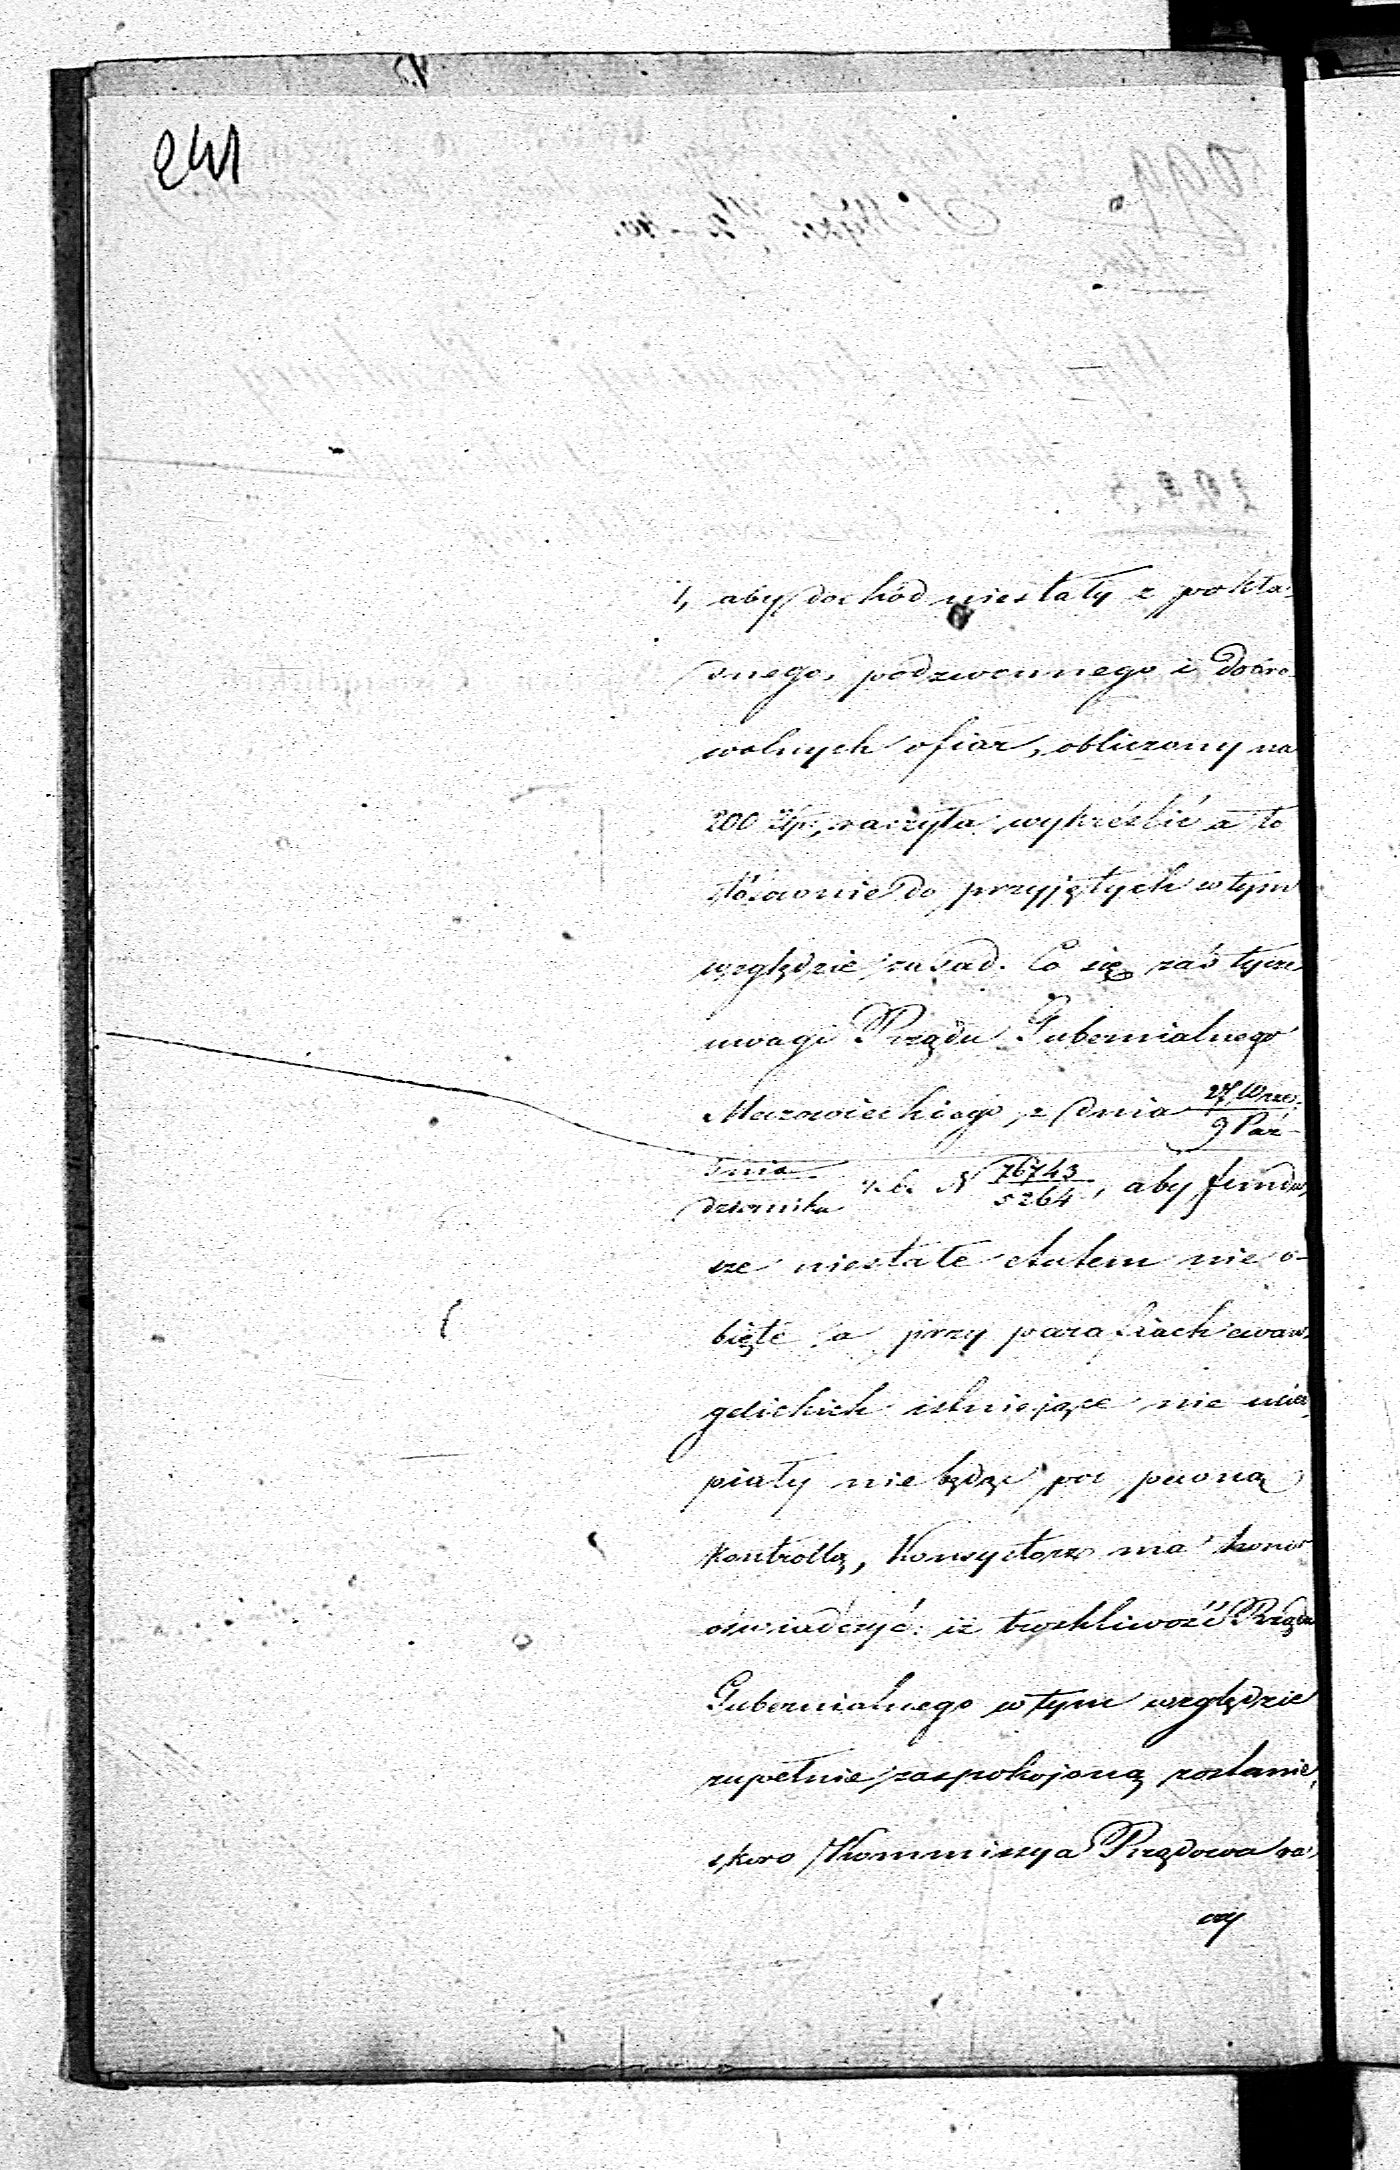 241
1, aby dochód niestały z pokła-
dnego, podzwonnego i dobro-
wolnych ofiar, obliczony na
200 Złp., raczyła wykréślić a to
stósownie do przyjętych w tym
względzie zasad. Co się zaś tyczy
uwagi Rządu Gubernialnego
Mazowieckiego z dnia 27 Wrze-/9 Paź-
śnia/dziernika r. b. N 76743/5264, aby fundu-
sze niestałe etatem nie o-
bięte a przy parafiach ewan-
gelickich istniejące nie ucier-
piały nie będąc pod pewną
kontrollą, Konsystorz ma honor
oświadczyć: iż troskliwość Rządu
Gubernialnego w tym względzie
zupełnie zaspokojoną zostanie,
skoro Kommissya Rządowa ra-
czy